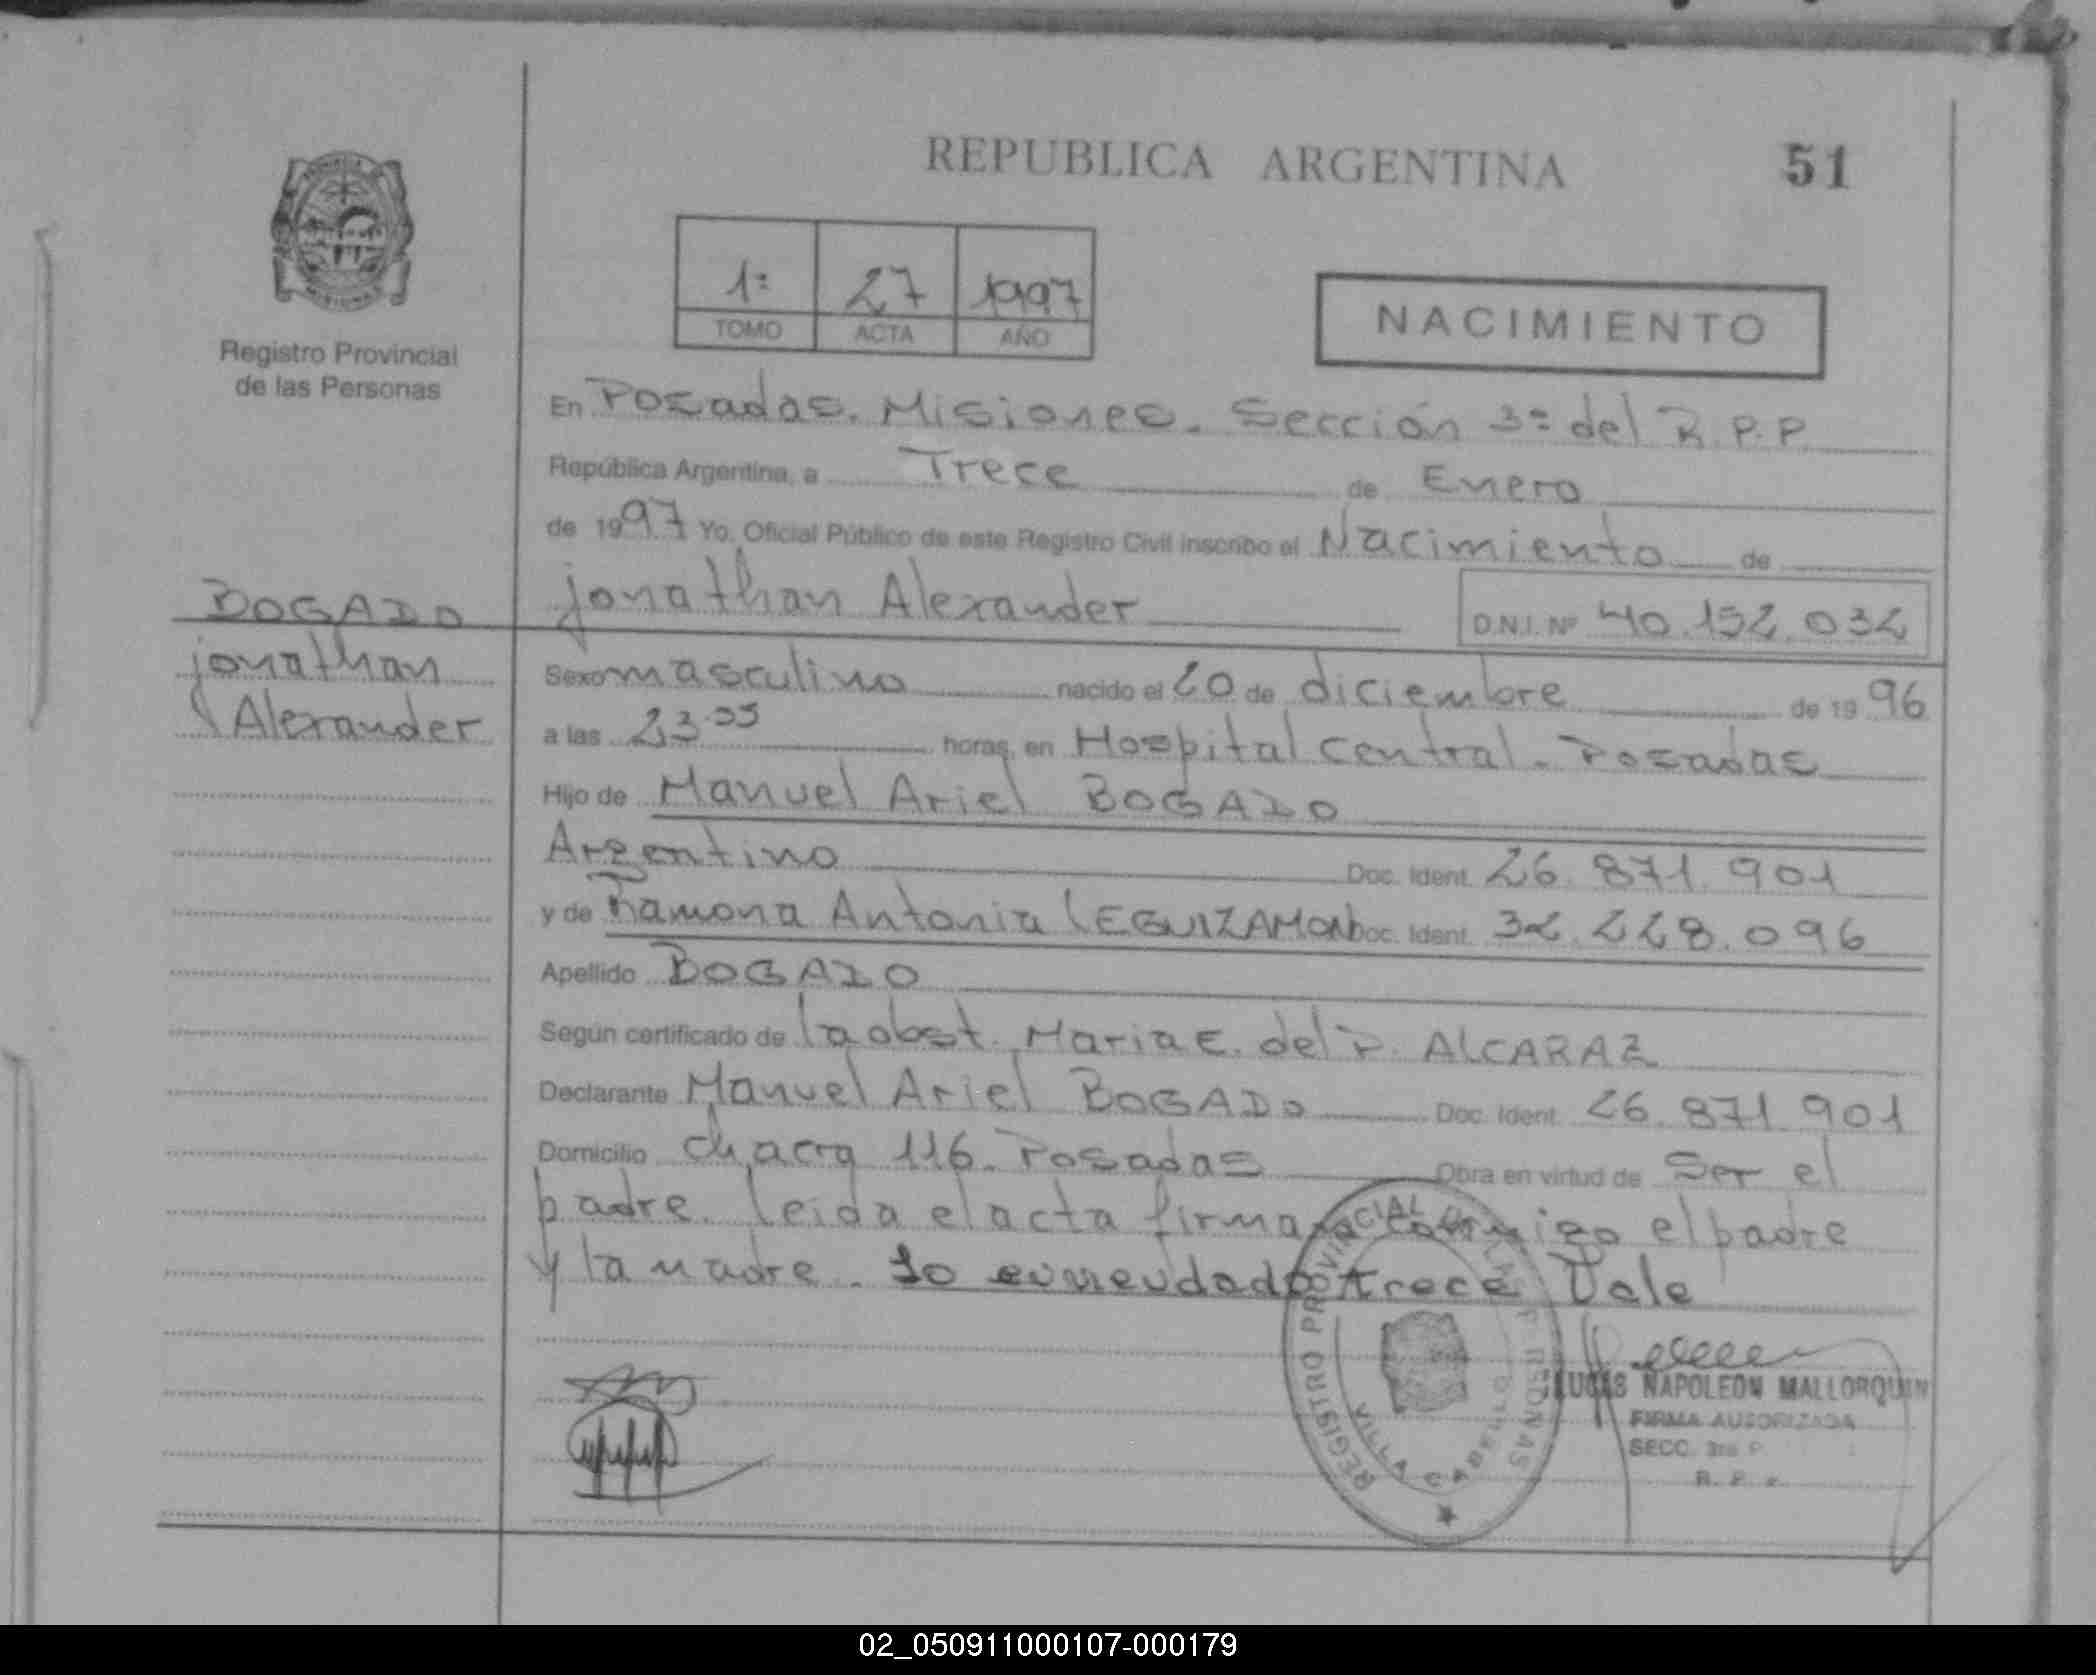 REPUBLICA ARGENTINA
51
PROVINCIA
MISIONES
Registro Provincial
de las Personas
1º 27 1997
TOMO ACTA AÑO
NACIMIENTO
En Posadas. Misiones. Sección 3º del R.P.P.
República Argentina, a Trece de Enero
de 1997 Yo. Oficial Público de este Registro Civil inscribo el Nacimiento de
Jonathan Alexander D.N.I. Nº 40.152.032
BOGADO
Jonathan
Alexander
Sexo masculino nacido el 20 de diciembre de 1996
a las 23.05 horas, en Hospital Central. Posadas
Hijo de Manuel Ariel BOGADO
Argentino Doc. Ident. 26.871.901
y de Ramona Antonia LEGUIZAMON Doc. Ident. 32.228.096
Apellido BOGADO
Según certificado de la obst. Maria E. del P. ALCARAZ
Declarante Manuel Ariel BOGADO Doc. Ident. 26.871.901
Domicilio chacra 116. Posadas Obra en virtud de Ser el
padre. leida el acta firman conmigo el padre
y la madre. Lo enmendado trece Vale
REGISTRO PROVINCIAL DE LAS PERSONAS
VILLA CABELLO
LUCAS NAPOLEON MALLORQUIN
FIRMA AUTORIZADA
SECC. 3ra P.
R. P. P.
02_050911000107-000179